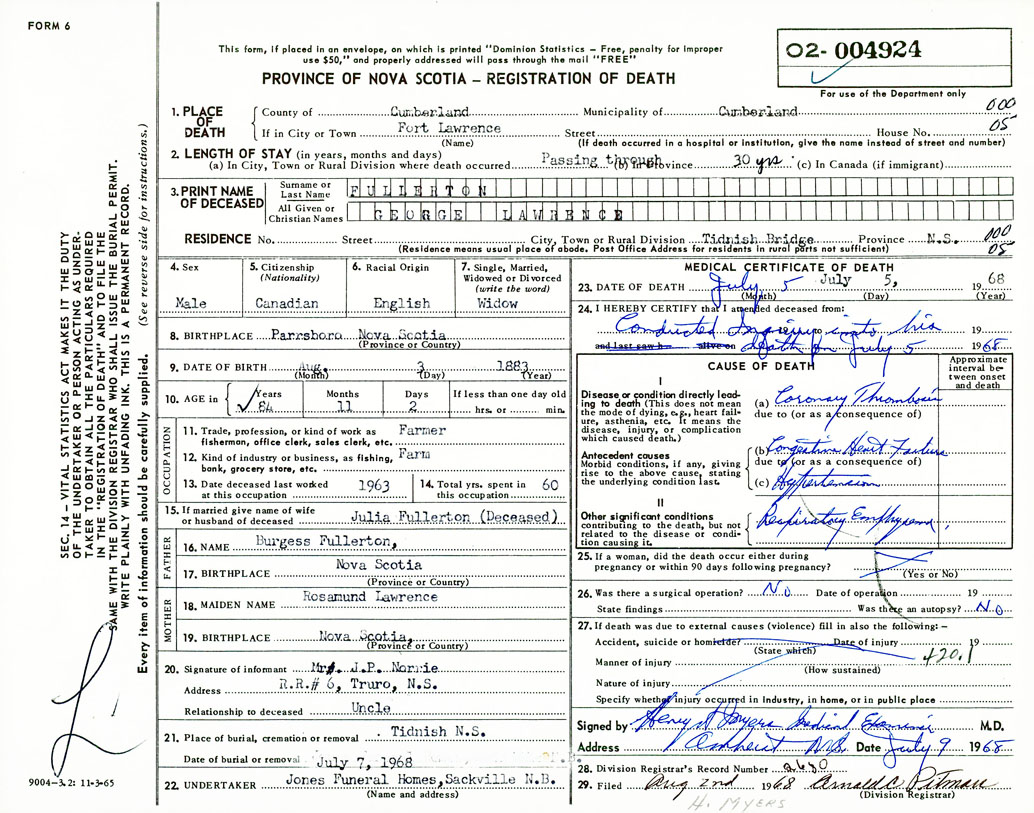 FORM 6
This form, if placed in an envelope, on which is printed "Dominion Statistics — Free, penalty for improper
use $50," and properly addressed will pass through the mail "FREE"
PROVINCE OF NOVA SCOTIA — REGISTRATION OF DEATH
02- 004924
For use of the Department only
SEC. 14 - VITAL STATISTICS ACT MAKES IT THE DUTY
OF THE UNDERTAKER OR PERSON ACTING AS UNDER-
TAKER TO OBTAIN ALL THE PARTICULARS REQUIRED
IN THE "REGISTRATION OF DEATH" AND TO FILE THE
SAME WITH THE DIVISION REGISTRAR WHO SHALL ISSUE THE BURIAL PERMIT.
WRITE PLAINLY WITH UNFADING INK. THIS IS A PERMANENT RECORD.
Every item of information should be carefully supplied. (See reverse side for instructions.)
9004-3.2: 11-3-65
1. PLACE OF DEATH County of Cumberland Municipality of Cumberland 000
If in City or Town Fort Lawrence Street House No. 05
(Name) (If death occurred in a hospital or institution, give the name instead of street and number)
2. LENGTH OF STAY (in years, months and days)
(a) In City, Town or Rural Division where death occurred Passing through (b) In Province 30 yrs (c) In Canada (if immigrant)
3. PRINT NAME OF DECEASED Surname or Last Name FULLERTON
All Given or Christian Names GEORGE LAWRENCE
RESIDENCE No. Street City, Town or Rural Division Tidnish Bridge Province N.S. 000
(Residence means usual place of abode. Post Office Address for residents in rural parts not sufficient) 05
4. Sex Male
5. Citizenship (Nationality) Canadian
6. Racial Origin English
7. Single, Married, Widowed or Divorced (write the word) Widow
8. BIRTHPLACE Parrsboro Nova Scotia
(Province or Country)
9. DATE OF BIRTH Aug. 3 1883
(Month) (Day) (Year)
10. AGE in Years 84 Months 11 Days 2 If less than one day old hrs. or min.
OCCUPATION
11. Trade, profession, or kind of work as fisherman, office clerk, sales clerk, etc. Farmer
12. Kind of industry or business, as fishing, bank, grocery store, etc. Farm
13. Date deceased last worked at this occupation 1963
14. Total yrs. spent in this occupation 60
15. If married give name of wife or husband of deceased Julia Fullerton (Deceased)
FATHER
16. NAME Burgess Fullerton,
17. BIRTHPLACE Nova Scotia
(Province or Country)
MOTHER
18. MAIDEN NAME Rosamund Lawrence
19. BIRTHPLACE Nova Scotia,
(Province or Country)
20. Signature of informant Mrs. J.P. Norrie
Address R.R.# 6, Truro, N.S.
Relationship to deceased Uncle
21. Place of burial, cremation or removal Tidnish N.S.
Date of burial or removal July 7, 1968
22. UNDERTAKER Jones Funeral Homes, Sackville N.B.
(Name and address)
MEDICAL CERTIFICATE OF DEATH
23. DATE OF DEATH July 5 July 5, 1968
(Month) (Day) (Year)
24. I HEREBY CERTIFY that I attended deceased from:
Conducted Inquiry into his 19
and last saw h alive on death on July 5 1968
CAUSE OF DEATH
Approximate interval between onset and death
I
Disease or condition directly leading to death (This does not mean the mode of dying, e.g., heart failure, asthenia, etc. It means the disease, injury, or complication which caused death.)
(a) Coronary Thrombosis
due to (or as a consequence of)
Antecedent causes
Morbid conditions, if any, giving rise to the above cause, stating the underlying condition last.
(b) Congestive Heart Failure
due to (or as a consequence of)
(c) Hypertension
II
Other significant conditions contributing to the death, but not related to the disease or condition causing it.
Respiratory Emphysema
25. If a woman, did the death occur either during pregnancy or within 90 days following pregnancy?
(Yes or No)
26. Was there a surgical operation? No Date of operation 19
State findings Was there an autopsy? No
27. If death was due to external causes (violence) fill in also the following: —
Accident, suicide or homicide? Date of injury 19
(State which) 420.1
Manner of injury
(How sustained)
Nature of injury
Specify whether injury occurred in Industry, in home, or in public place
Signed by Henry Myers Medical Examiner M.D.
Address Amherst N.S. Date July 9 1968
28. Division Registrar's Record Number 2680
29. Filed Aug 2nd 1968 Arnold C Pitman
(Division Registrar)
H. MYERS